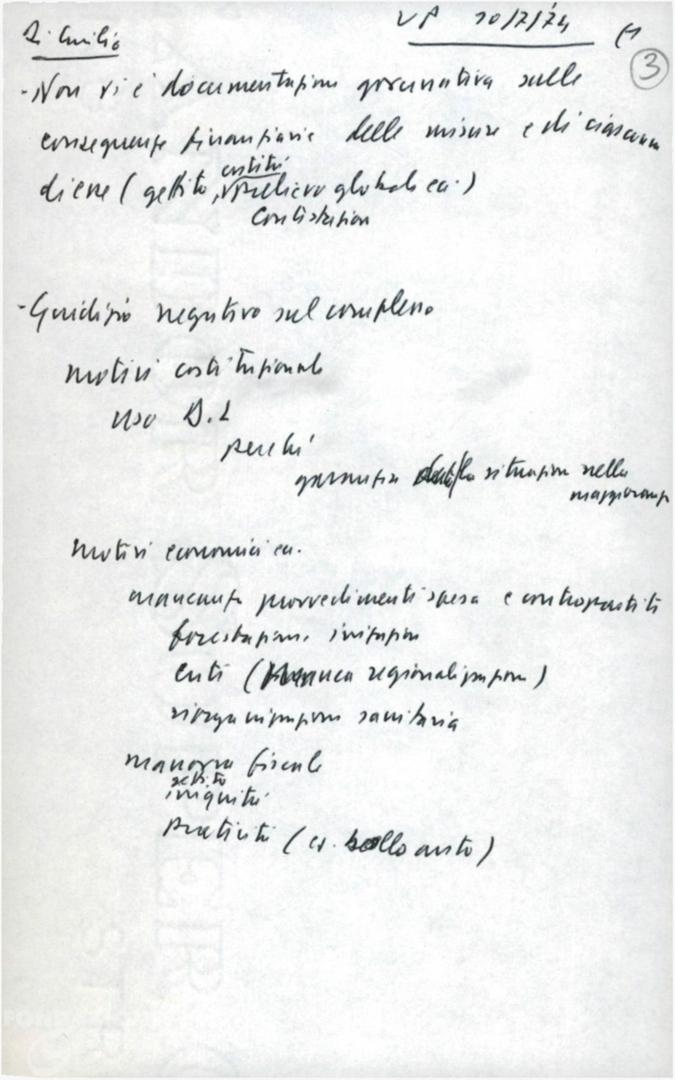 Di Giulio
UP 10/7/74 (1
3
- Non vi è documentazione governativa sulle
conseguenze finanziarie delle misure e di ciascuna
di esse (gettito, entità prelievo globale ec.)
Contestazione
- Giudizio negativo sul complesso
motivi costituzionali
uso D.L
perché
garanzia situazione nella
maggioranza
motivi economici ec.
mancanza provvedimenti spesa e contropartite
forestazione irrigazione
enti (manca regionalizzazione)
riorganizzazione sanitaria
manovra fiscale
gettito
iniquità
(es. bollo auto)